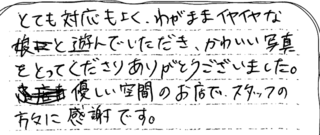 とても対応もよく、わがままイヤイヤな
娘と遊んでいただき、かわいい写真
をとってくださりありがとうございました。
優しい空間のお店で、スタッフの
方々に感謝です。